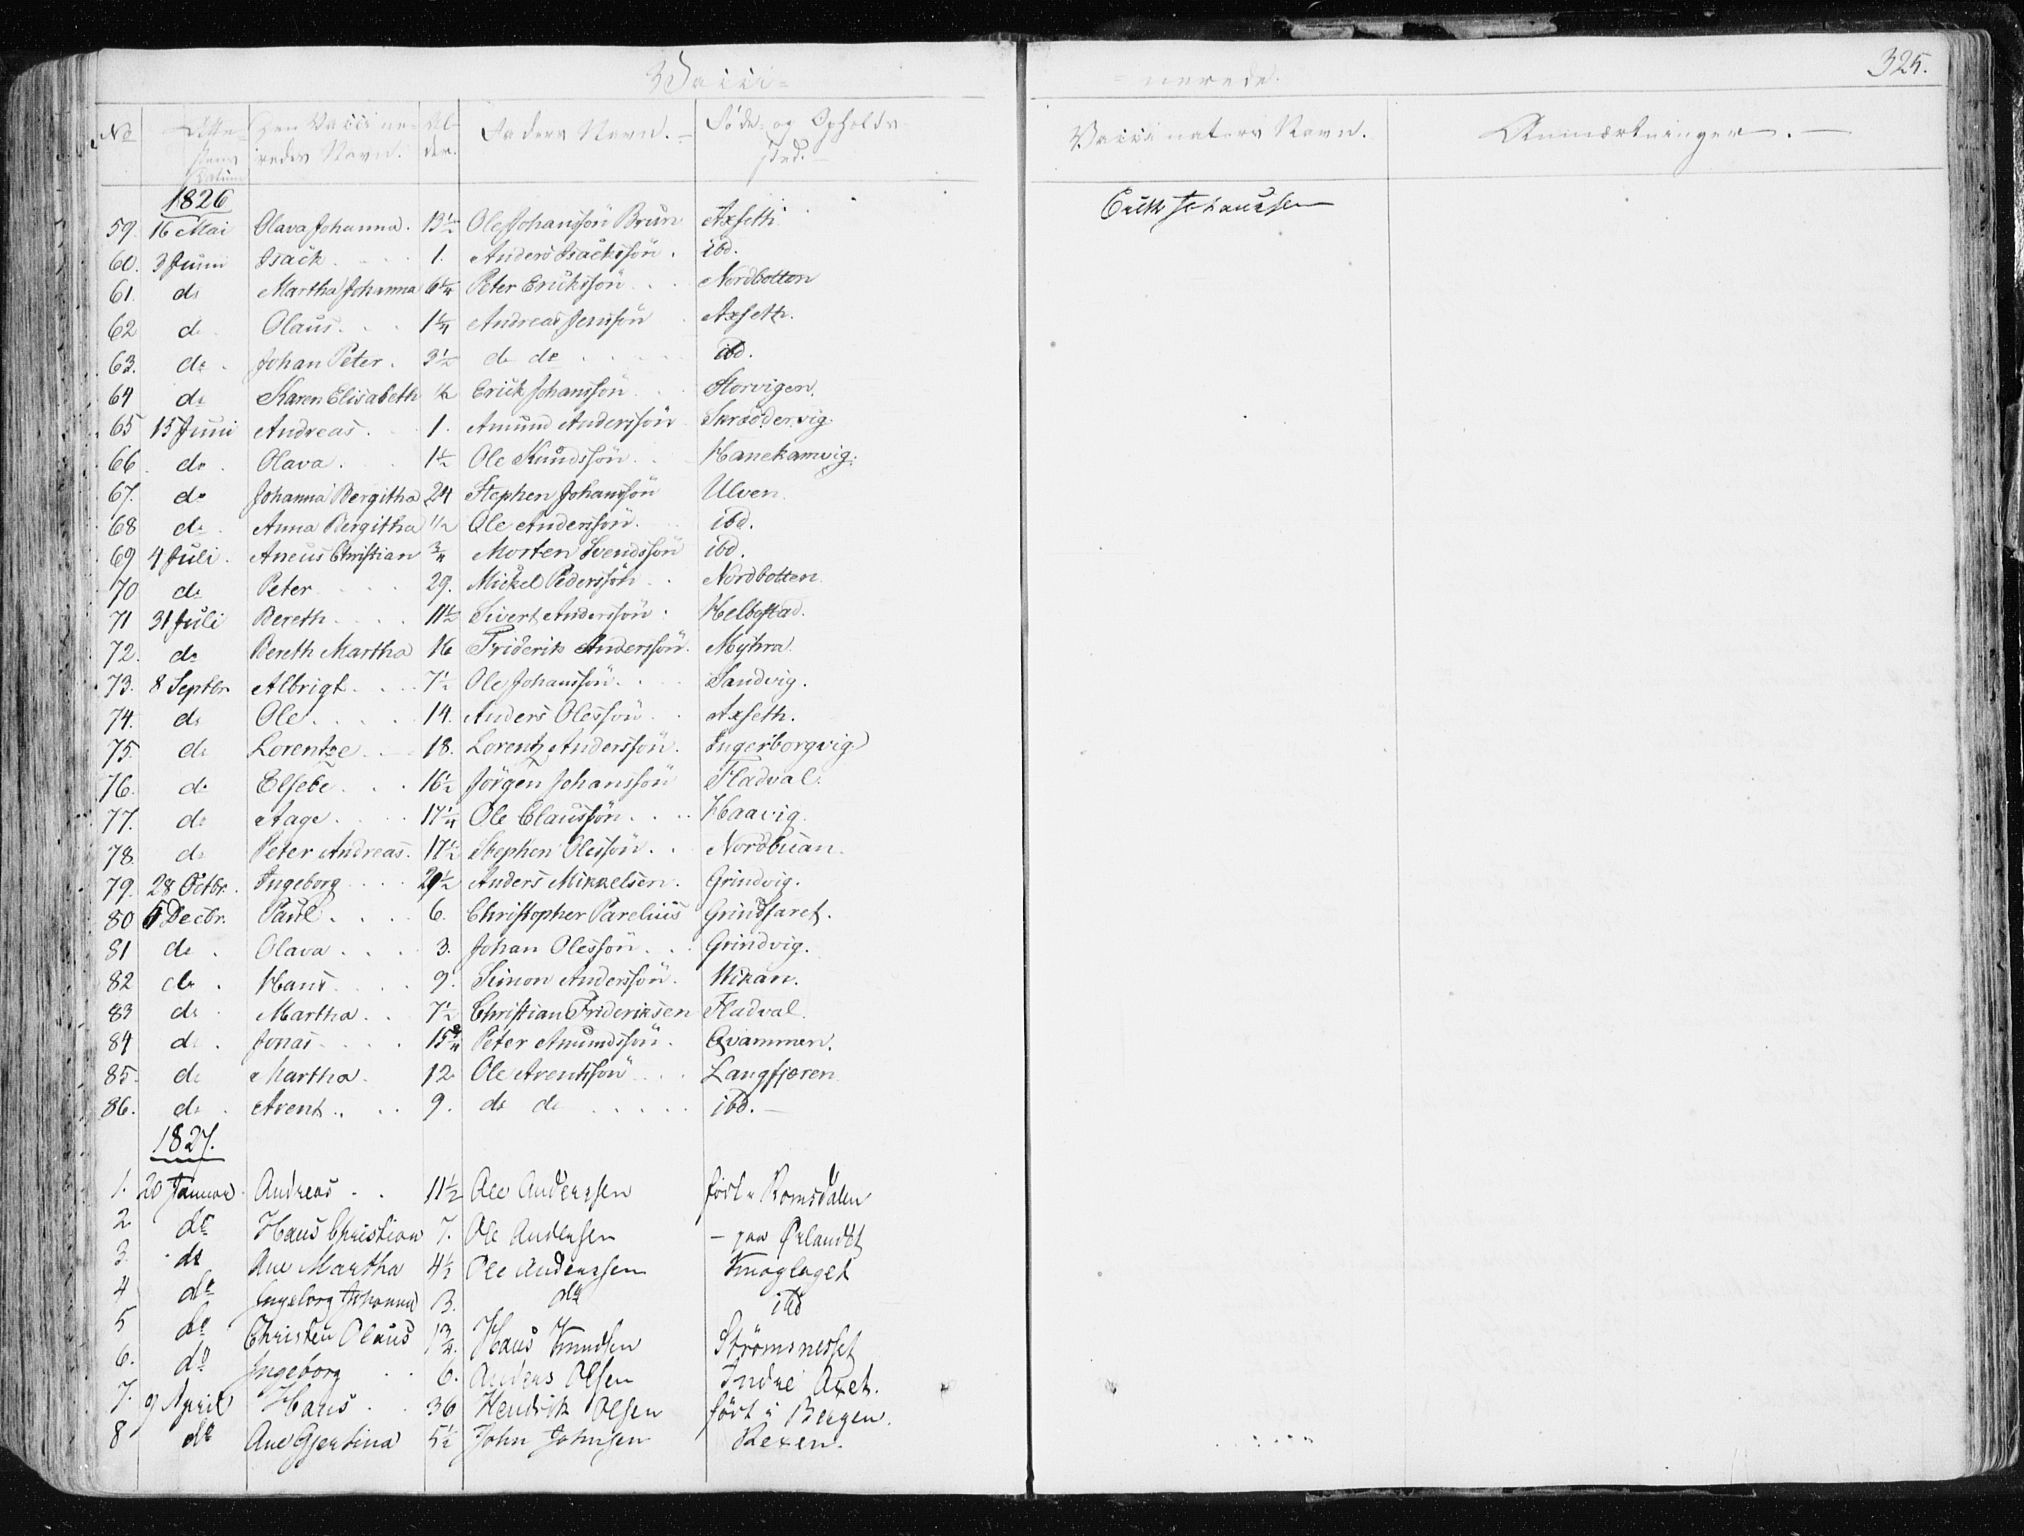 325.
Vacci= =nerede.
No Atte=stens Datum Den Vaccine=redes Navn. Al=der. Faders Navn. Føde- og Opholds=sted. Vaccinateurs Navn. Anmærkninger.
1826
59. 16 Mai Olava Johanna. 13½ Ole Johanssön Brun Axseth
60. 3 Juni Isack 1. Anders Isackssön. ibd.
61. do Martha Johanna 6¼ Peter Erickssön Nordbotten
62 do Olaus. 1¼ Andreas Jenssön Axseth.
63. do. Johan Peter. 3½ do do ibd.
64 do Karen Elisabeth ½ Erick Johanssön Storvigen.
65 15 Juni Andreas. 1. Amund Anderssön Skræddervig
66. do. Olava. 1½ Ole Knudssön Hanekamvig.
67. do Johanna Bergitha 24 Stephen Johanssön Ulven.
68 do. Anna Bergitha 1/2 Ole Anderssön. ibd.
69 4 Juli. Aneus Christian ¾ Morten Svendssön ibd.
70 do Peter 29. Mickel Pederssön Nordbotten.
71 31 Juli Bereth 11½ Sivert Anderssön. Helbostad.
72. do Bereth Martha 16 Friderik Anderssön. Myhra.
73. 8 Septbr. Albrigt 7½ Ole Johanssön Sandvig.
74. do Ole 14. Anders Olessön Axseth.
75 do Lorentze 18. Lorentz Anderssön. Ingerborgvig
76. do Elsebe 16½ Jörgen Johanssön Fladval.
77. do Aage 17¼ Ole Claussön Haavig.
78. do Peter Andreas. 17½ Stephen Olessön Nordbuan.
79. 28 Octbr. Ingeborg 29½ Anders Mikkelsen. Grindvig.
80 5 Decbr. Paul 6. Christopher Parelius Grindfaret.
81 do. Olava 3. Johan Olessön Grindvig.
82 do. Hans 9. Simon Anderssön. Vikan.
83 do. Martha 7½ Christian Frideriksen Fladval.
84 do. Jonas 15¾ Peter Amundssön. Qvammen.
85. do Martha. 12 Ole Arentssön Langfjæren
86. do. Arent 9. do do ibd.
1827.
1. 20 Januar. Andreas 11½ Ole Anderssen født i Romsdalen
2 do Hans Christian 7. Ole Andersen — paa Ørlandet
3. do Ane Martha 4½ Ole Anderssen
4 do Ingeborg Johanna 3. do ibd
5 do Christen Olaus 1¾. Hans Knudsen Strömsnesset
6. do Ingeborg 6. Anders Olsen Indre Axet.
7. 9 April Hans 36 Hendrik Olsen født i Bergen.
8 do Ane Gjertina 5½ John Johnsen Rexen.